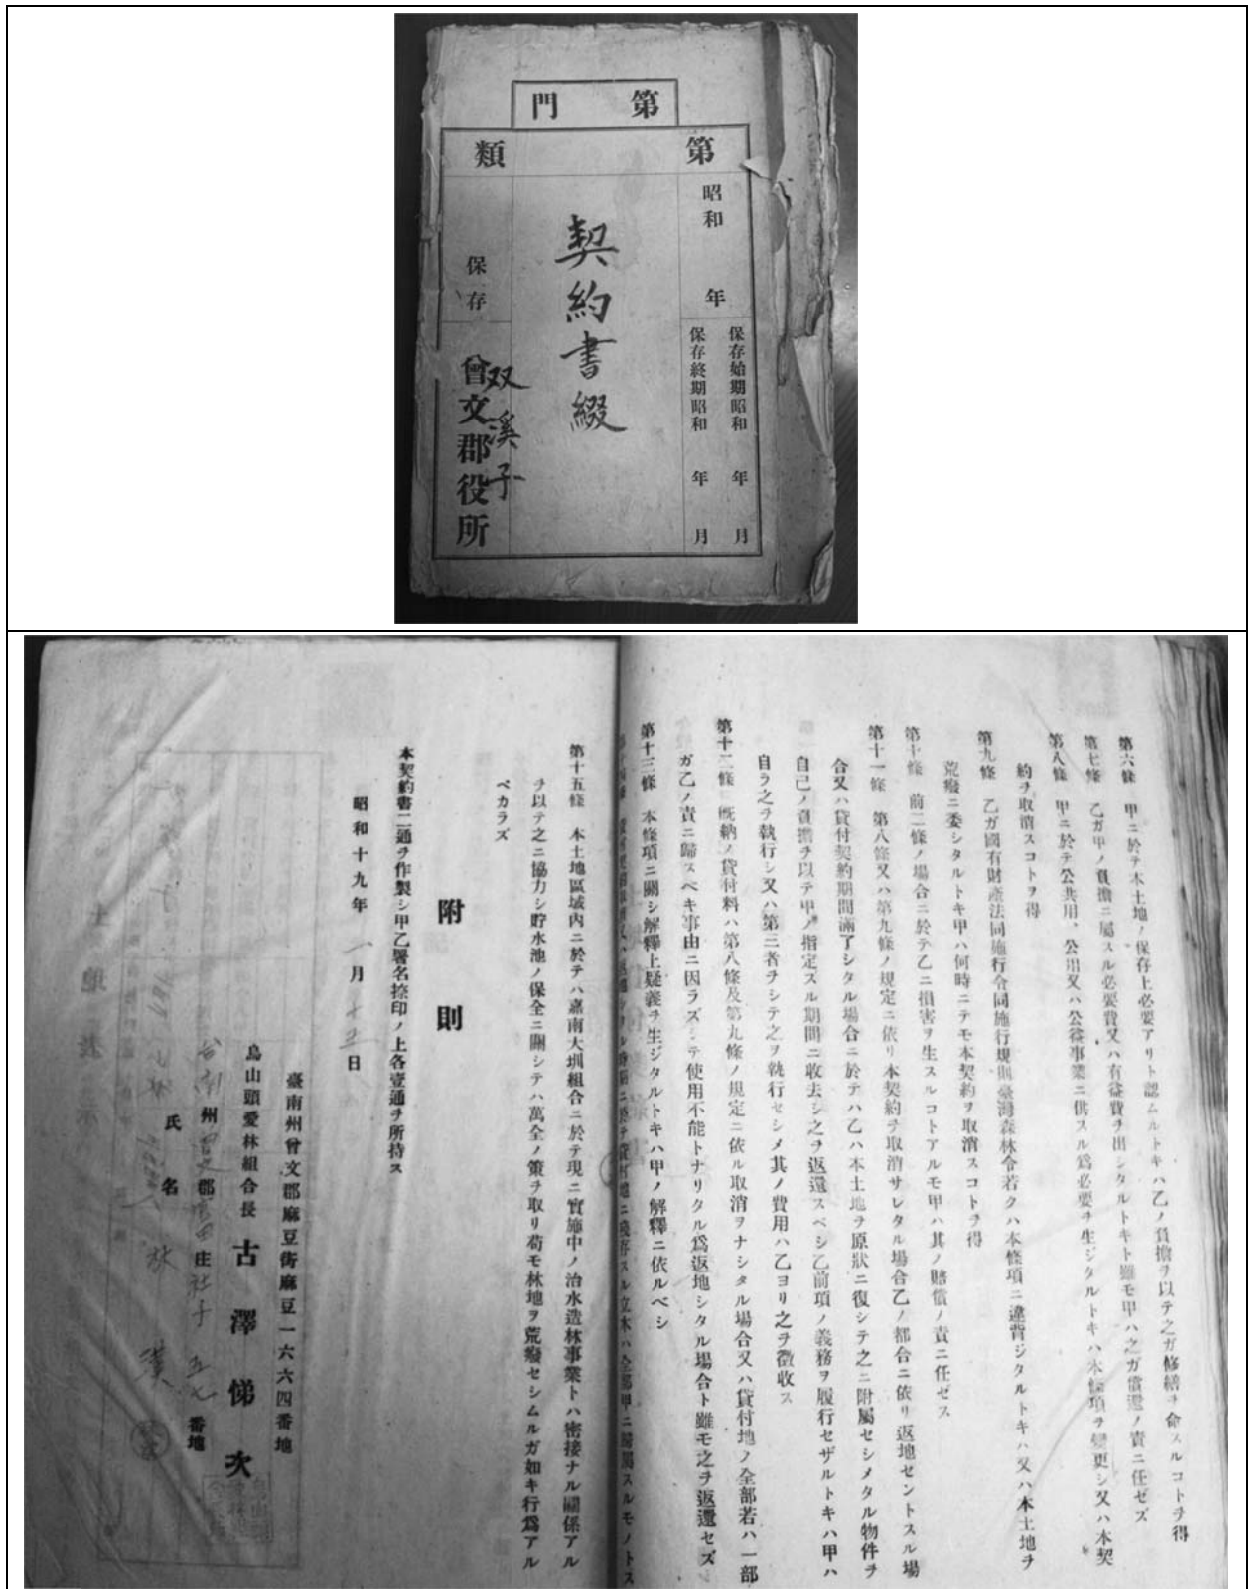 第 門
第 類
昭和 年
保存始期昭和 年 月
保存終期昭和 年 月
契約書綴
保存
曾文郡役所
双溪子
第六條 甲ニ於テ本土地ノ保存上必要アリト認ムルトキハ乙ノ負擔ヲ以テ之ガ修繕ヲ命スルコトヲ得
第七條 乙ガ甲ノ負擔ニ屬スル必要費又ハ有益費ヲ出シタルトキト雖モ甲ハ之ガ償還ノ責ニ任ゼズ
第八條 甲ニ於テ公共用、公用又ハ公益事業ニ供スル爲必要ヲ生ジタルトキハ本條項ヲ變更シ又ハ本契
約ヲ取消スコトヲ得
第九條 乙ガ國有財產法同施行令同施行規則臺灣森林令若クハ本條項ニ違背ジタルトキハ又ハ本土地ヲ
荒廢ニ委シタルトキ甲ハ何時ニテモ本契約ヲ取消スコトヲ得
第十條 前二條ノ場合ニ於テ乙ニ損害ヲ生スルコトアルモ甲ハ其ノ賠償ノ責ニ任ゼス
第十一條 第八條又ハ第九條ノ規定ニ依リ本契約ヲ取消サレタル場合乙ノ都合ニ依リ返地セントスル場
合又ハ貸付契約期間滿了シタル場合ニ於テハ乙ハ本土地ヲ原狀ニ復シテ之ニ附屬セシメタル物件ヲ
自己ノ負擔ヲ以テ甲ノ指定スル期間ニ收去シ之ヲ返還スベシ乙前項ノ義務ヲ履行セザルトキハ甲ハ
自ラ之ヲ執行シ又ハ第三者ヲシテ之ヲ執行セシメ其ノ費用ハ乙ヨリ之ヲ徵收ス
第十二條 既納ノ貸付料ハ第八條及第九條ノ規定ニ依ル取消ヲナシタル場合又ハ貸付地ノ全部若ハ一部
ガ乙ノ責ニ歸スベキ事由ニ因ラズシテ使用不能トナリタル爲返地シタル場合ト雖モ之ヲ返還セズ
第十三條 本條項ニ關シ解釋上疑義ヲ生ジタルトキハ甲ノ解釋ニ依ルベシ
殘存スル立木ハ全部甲ニ歸屬スルモノトス
第十五條 本土地區域內ニ於テハ嘉南大圳組合ニ於テ現ニ實施中ノ治水造林事業トハ密接ナル關係アル
ヲ以テ之ニ協力シ貯水池ノ保全ニ關シテハ萬全ノ策ヲ取リ苟モ林地ヲ荒廢セシムルガ如キ行爲アル
ベカラズ
附則
本契約書二通ヲ作製シ甲乙署名捺印ノ上各壹通ヲ所持ス
昭和十九年一月十五日
臺南州曾文郡麻豆街麻豆一六六四番地
烏山頭愛林組合長 古澤悌次
台南州曾文郡官田庄社子五七番地
氏名